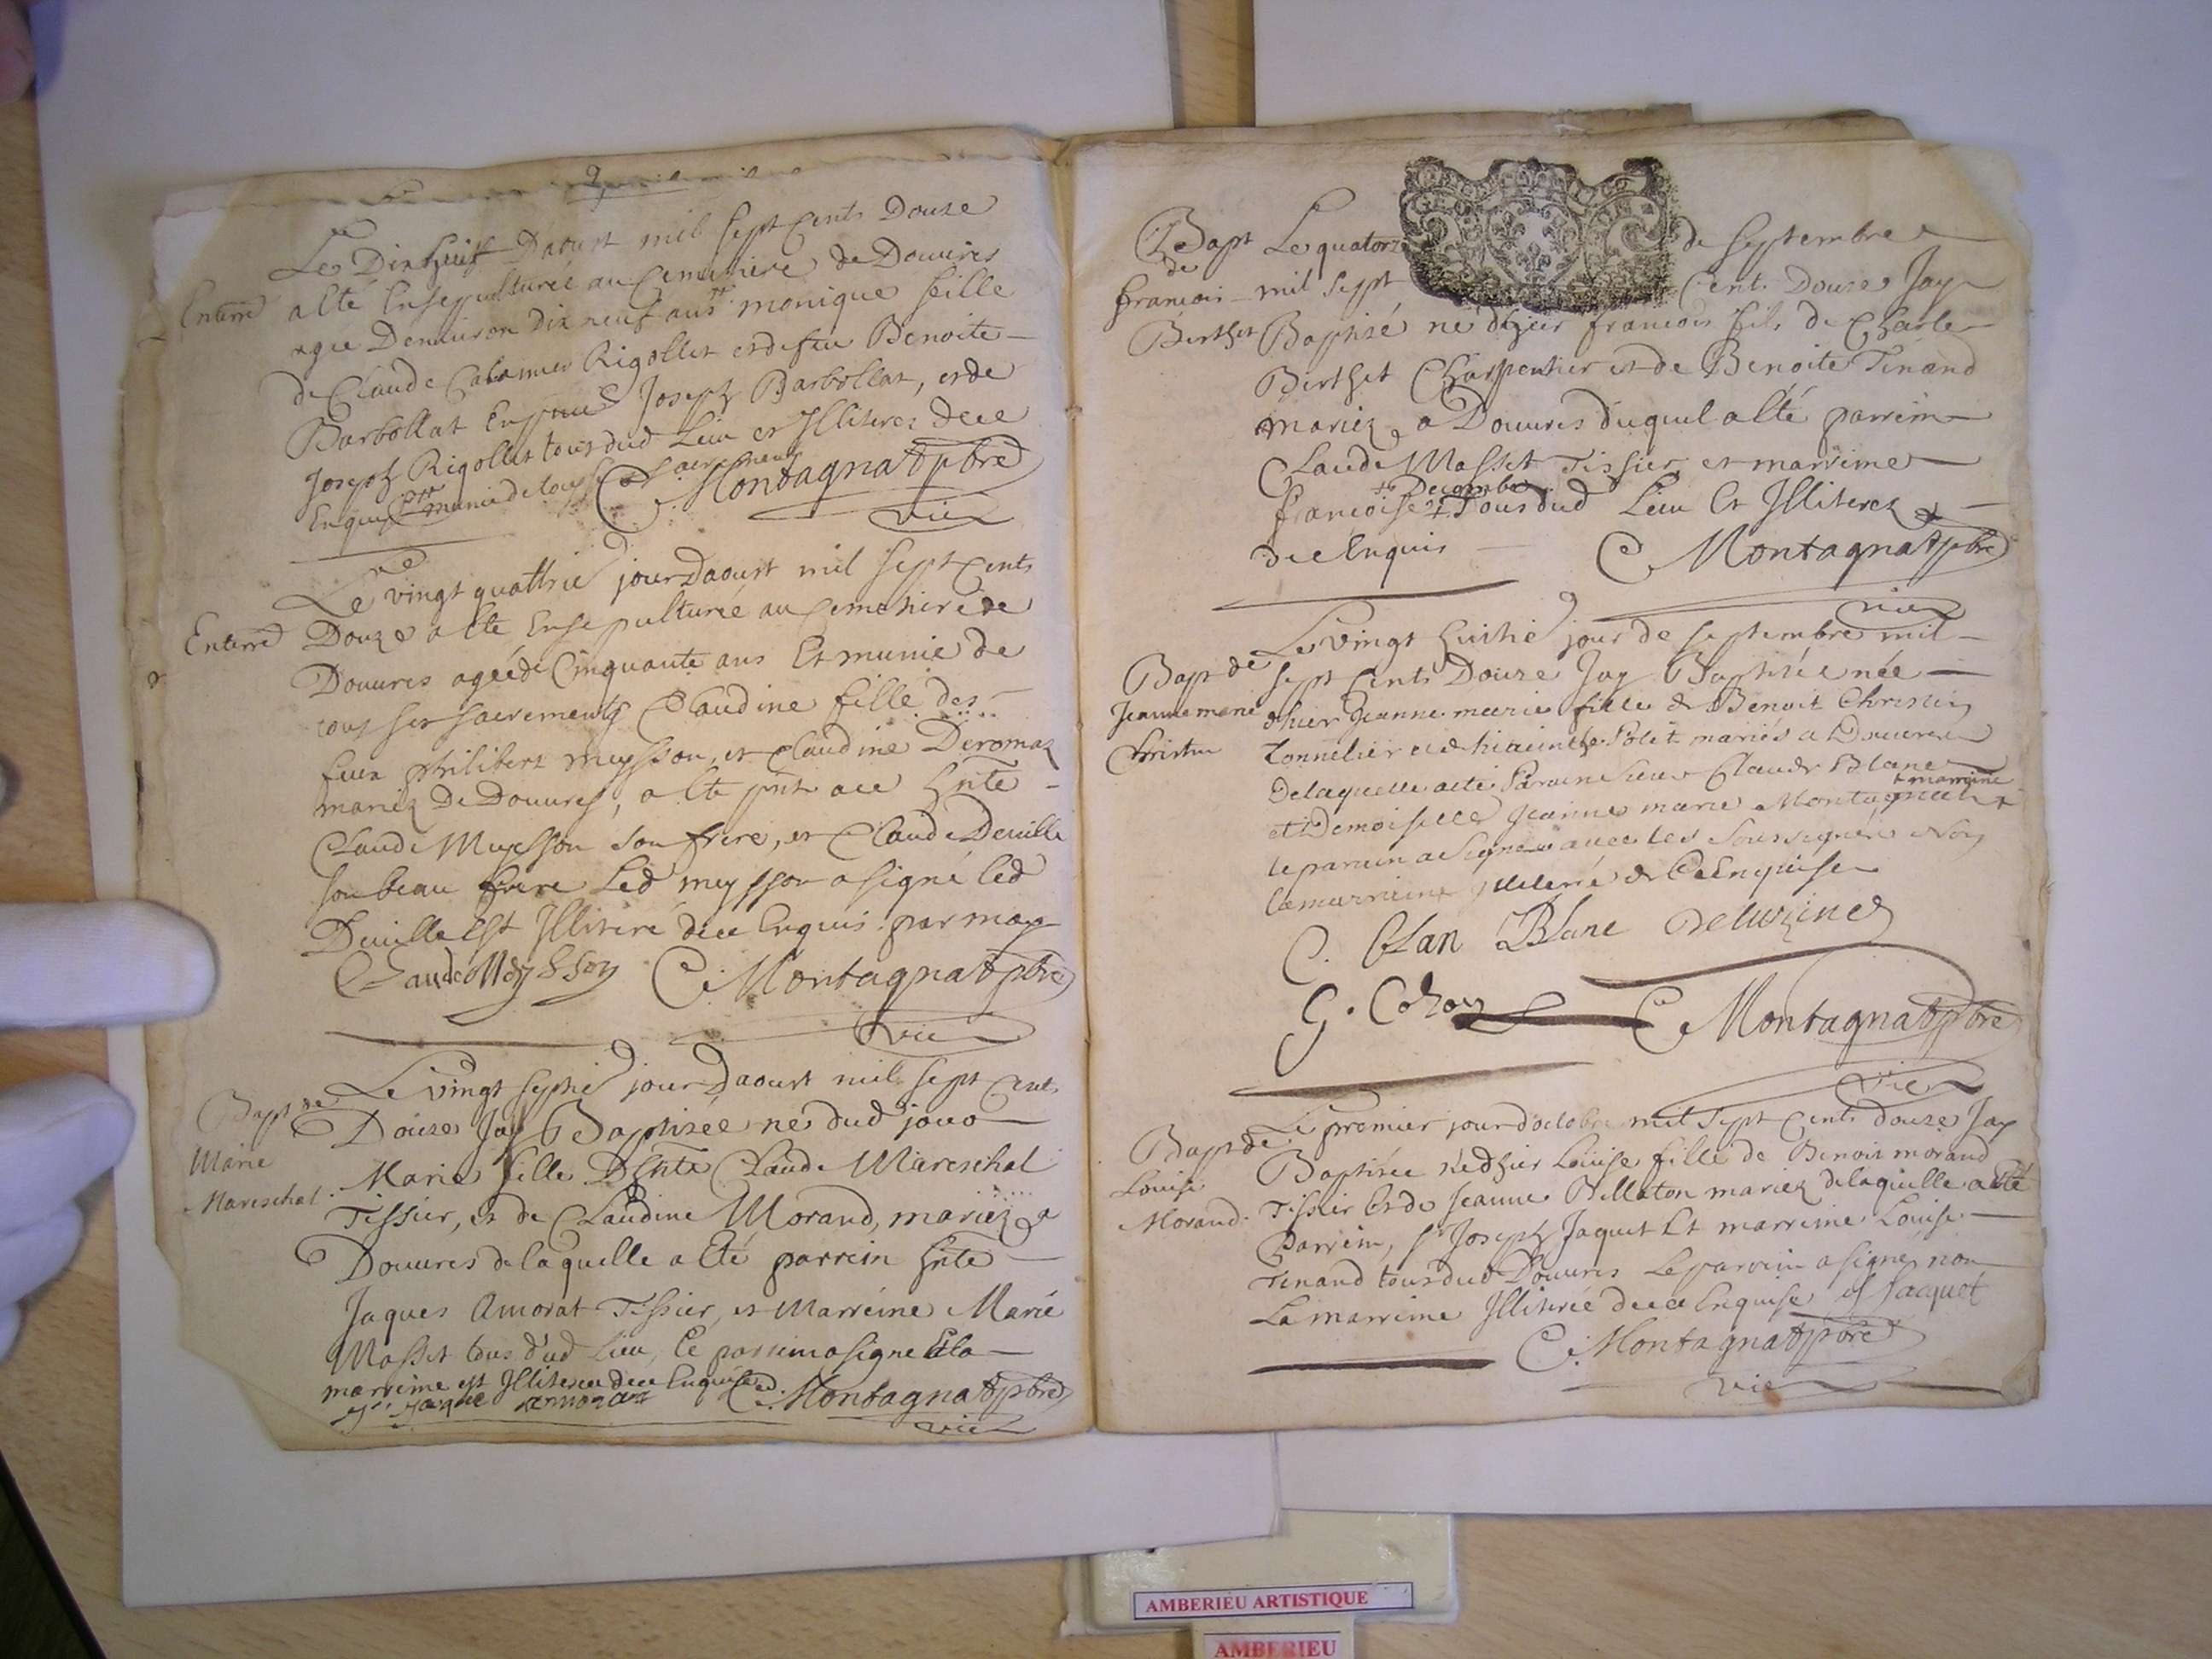 Le Dixhuit Daoust mil sept cents Douze
Enterré a esté Ensepulturée au Cemetiere de Douvres
agée Denviron dix neuf ans monique fille
de Claude Rigollet et de feu Benoite
Barbollat Joseph Barbollat, et de
Joseph Rigollet tous dud Lieu et Illiterez de ce
Enquis munie de tous sacrements
C. Montagnat pbre
vic
Le vingt quattrie jour Daoust mil sept Cents
Enterré Douze a esté Ensepulturée au Cemetiere de
Douvres agée de Cinquante ans Et munie de
tous ses sacrements Claudine fille des
feux philibert meysson, et Claudine Deromaz
mariez De Douvres, a esté pnt a ce hnte
Claude Meysson son frere, et Claude Deville
son beau frere Led meysson a signé led
Deville est Illiteré de ce Enquis par moy
Claude Meysson C. Montagnat pbre
vic
Le vingt septie jour Daoust mil sept Cents
Bapt de Douze Jay Baptisée né dud jour
Marie
Mareschal Marie fille D hnte Claude Mareschal
Tissier, et de Claudine Morand, mariez a
Douvres de laquelle a esté parrein hnte
Jaques Amorat Tissier, et Marreine Marie
Masset tous dud Lieu, Le parrein a signé Et la
marreine est Illiterée de ce Enquise
C. Montagnat pbre
vic
Bapt Le quatorz de Septembre
de
francois mil sept Cents Douze Jay
Berthet Baptisé né dhier francois fils de Charle
Berthet Charpentier et de Benoite Tenand
mariez a Douvres duquel a esté parrein
Claude Masset Tissier et marreine
+ Decombe
francoise + Tous dud Lieu Et Illiterez
de ce Enquis C. Montagnat pbre
vic
Le vingt huitie jour de septembre mil
Bapt de sept Cents Douze Jay Baptisée née
Jeanne marie dhier Jeanne marie fille de Benoit Christin
Christin Tonnelier et de hiacinthe Polet mariés a Douvres
De laquelle a esté Parrain Sieur Claude Blanc
+ marreine
et Demoiselle Jeanne marie Montagnat +
le parrain a signé avec les soussignés Non
la marreine illiterée de ce Enquise
C. Blanc
G. Cozon C. Montagnat pbre
vic
Le premier jour doctobre mil sept Cents douze Jay
Bapt de Baptisée née dhier Louise fille de Benoit morand
Louise Tissier Et de Jeanne Billaton mariez de laquelle a esté
Morand. Parrein, sr Joseph Jaquet Et marreine Louise
Tenand tous dud Douvres Le parrein a signé non
La marreine Illiterée de ce Enquise J Jaquet
C. Montagnat pbre
vic
AMBERIEU ARTISTIQUE
AMBERIEU